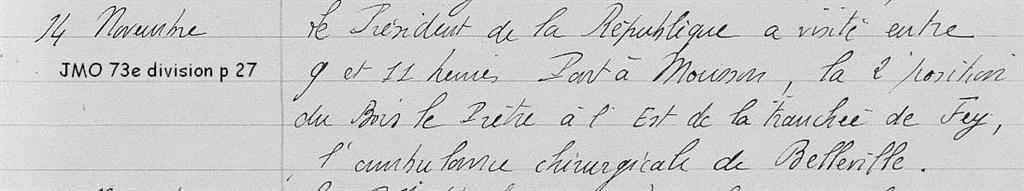 14 Novembre Le Président de la République a visité entre
JMO 73e division p 27
9 et 11 heures Pont à Mousson, la 2e position
du Bois le Prêtre à l'Est de la tranchée de Fey,
l'ambulance chirurgicale de Belleville.